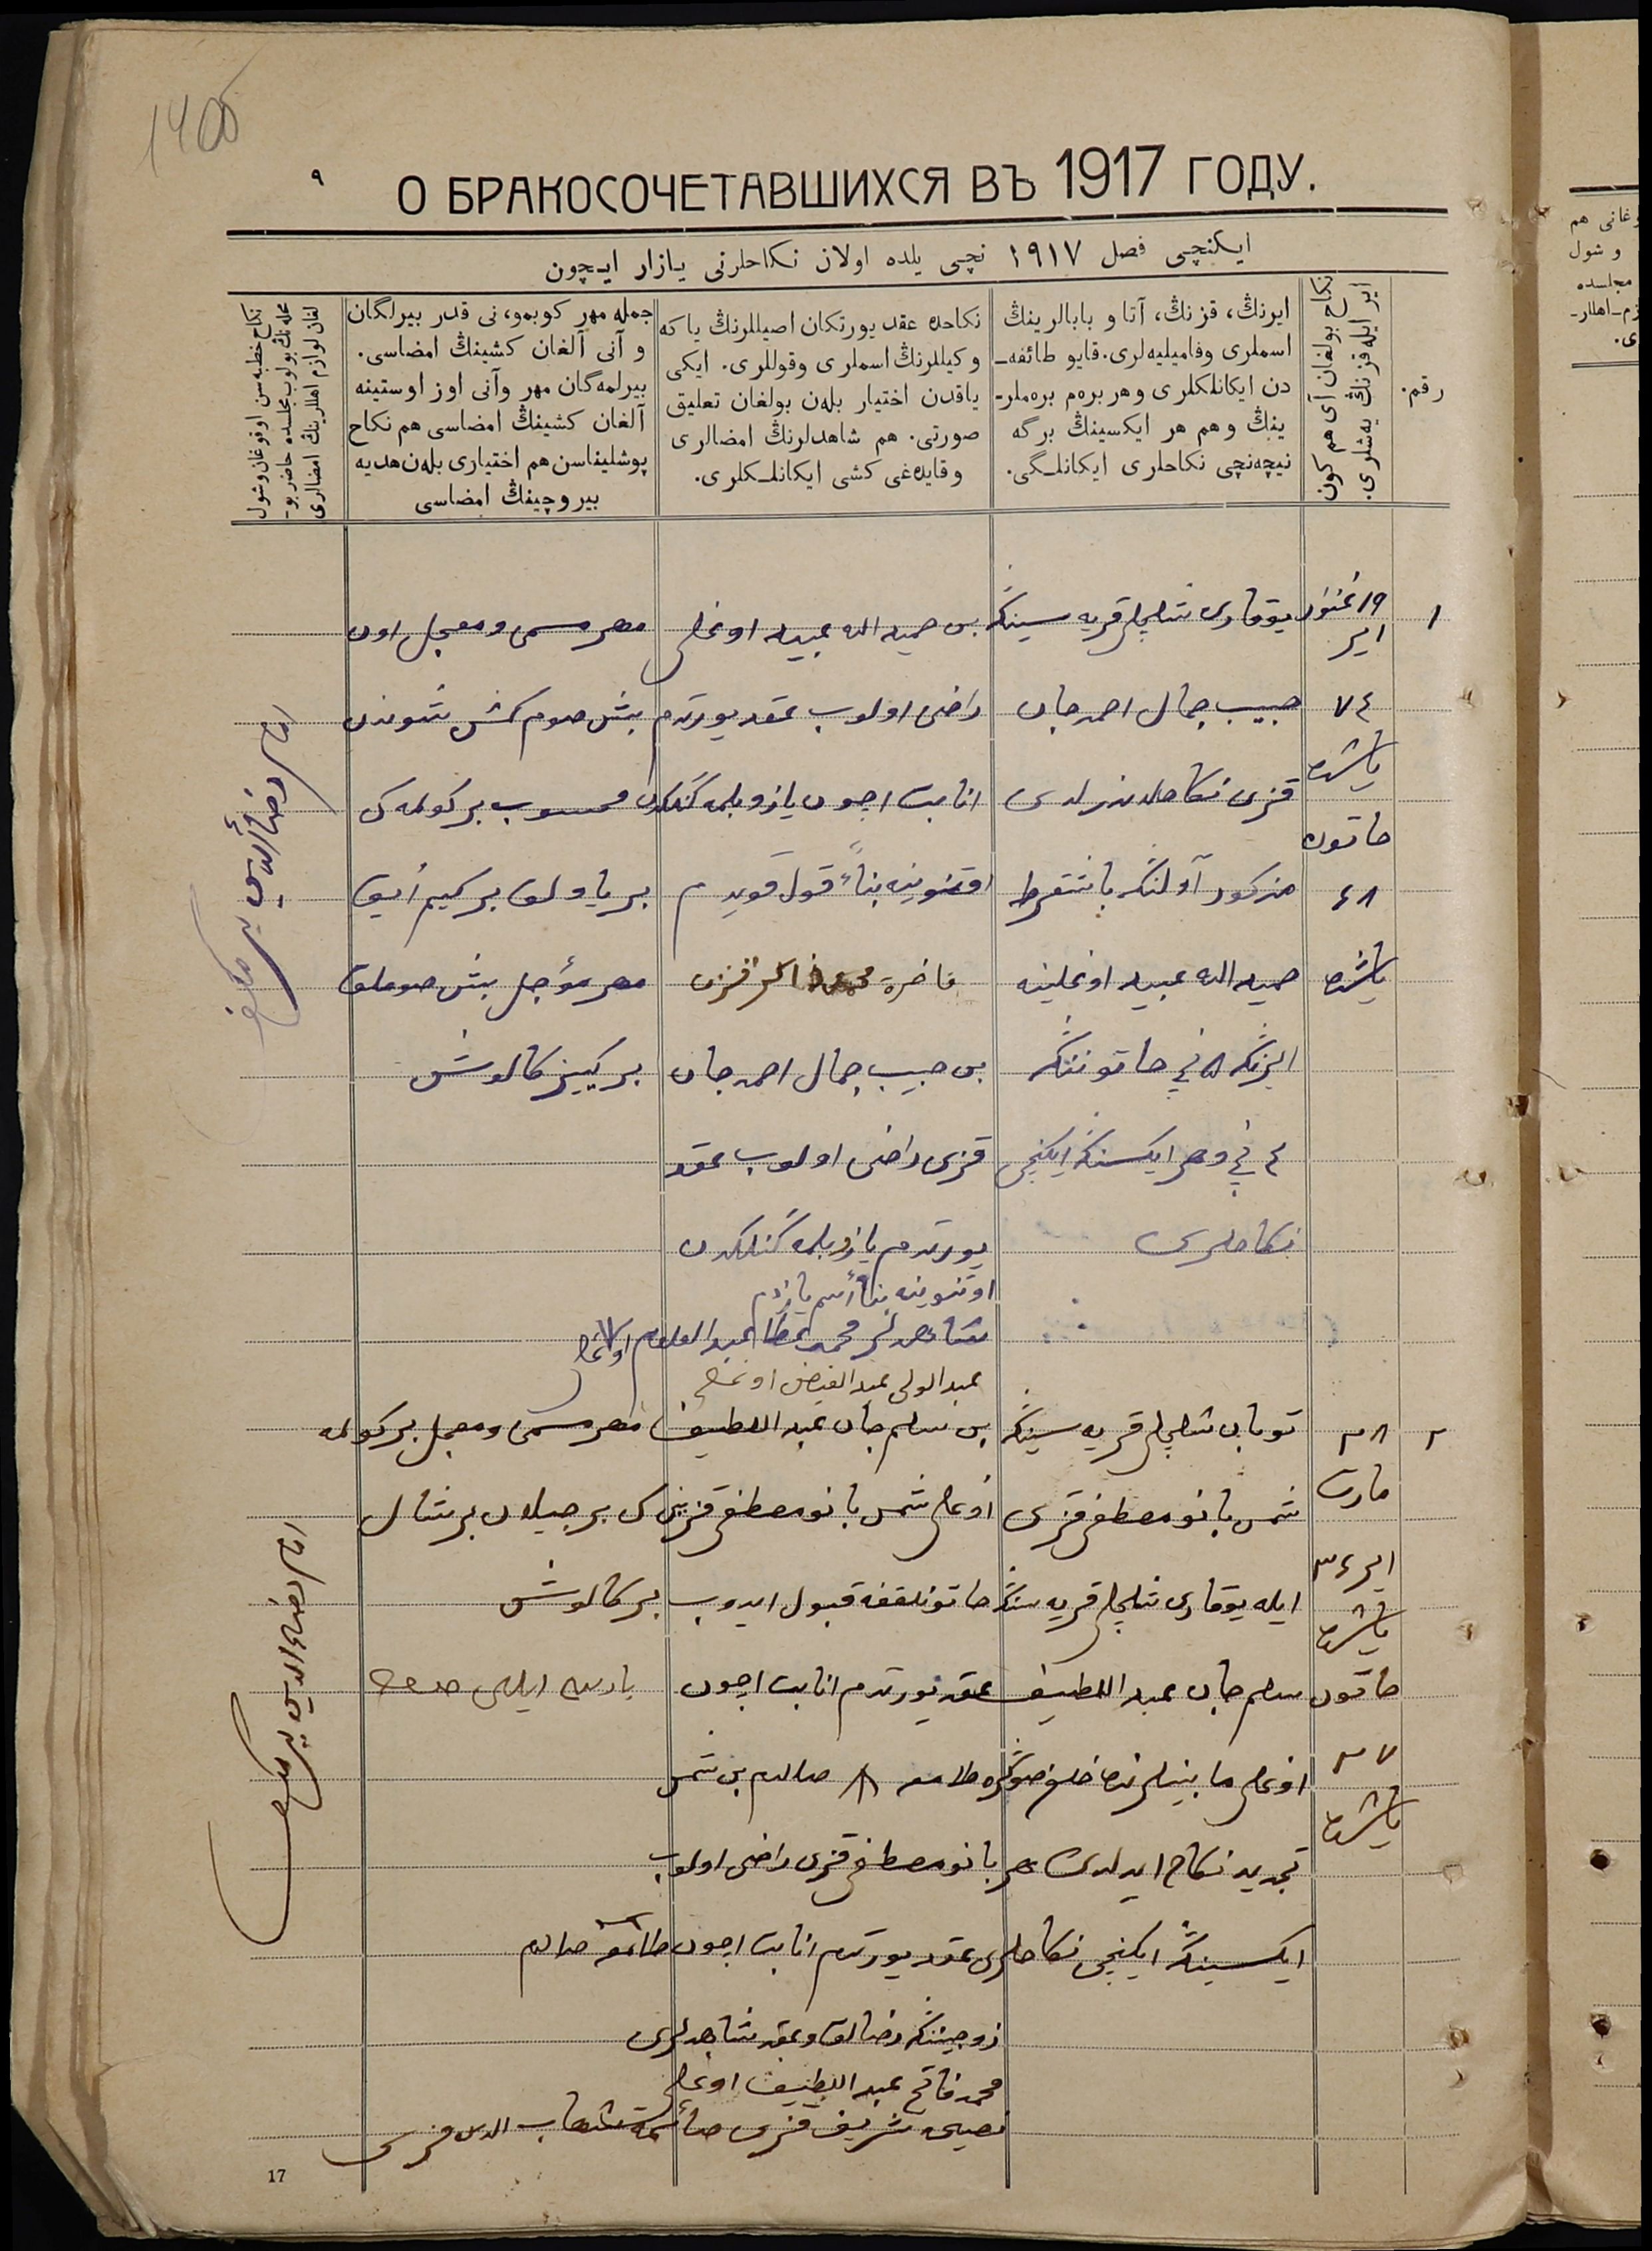 1405
٩
О БРАКОСОЧЕТАВШИХСЯ ВЪ 1917 ГОДУ.
ایکنچی فصل ١٩١٧ نچی یلده اولان نکاحلرنی یازار ایچون
رقم.
نکاح بولغان آی هم کون
ایر ایله قزنڭ یه‌شلری.
ایرنڭ، قزنڭ، آتا و بابالرینڭ
اسملری وفامیلیه‌لری. قایو طائفه‌ـ
دن ایکانلکلری وهر بره‌م بره‌ملرـ
ینڭ و هم هر ایکسینڭ برگه
نیچه‌نچی نکاحلری ایکانلـگی.
نکاحده عقد یورتکان اصیللرنڭ یا که
وکیللرنڭ اسملری وقوللری. ایکی
یاقدن اختیار بله‌ن بولغان تعلیق
صورتی. هم شاهدلرنڭ امضالری
وقایده‌غی کشی ایکانلـکلری.
جمله مهر کوبمو، نی قدر بیرلگان
و آنی آلغان کشینڭ امضاسی.
بیرلمه‌گان مهر وآنی اوز اوستینه
آلغان کشینڭ امضاسی هم نکاح
پوشلیناسن هم اختیاری بله‌ن هدیه
بیروچینڭ امضاسی
نکاح خطبه‌سن اوقوغان وشول
محله‌نڭ بولوب مجلسده حاضر بوـ
لغان لوازم اهللرینڭ امضالری
١
١٩ غنوار
ایر
٧٤
یاشنده
خاتون
٤٨
یاشنده
یوقاری شلچلی قریه سینڭ
حبیب جمال احمدجان
قزی نکاحلندرلدی
مذکور آولنڭ باشقرط
حمید الله عبید اوغلینه
ایرنڭ ٥ نچی خاتوننڭ
٣ نچی وهر ایکسینڭ ایکنچی
نکاحلری
بن حمید الله عبید اوغلی
راضی اولوب عقد یورتدم
اثابت اچون یازو بلمه‌گنلکدن
اوتنوینه بناءً قول قویدم
بن حبیب جمال احمدجان
قزی راضی اولوب عقد
یورتدم یازو بلمه‌گنلکدن
اوتنوینه بناءً اسم یازدم
شاهدلر محمد عطا عبد العلام اوغلی
عبد الولی عبد الفیض اوغلی
مهر مسمی و معجل اون
بش صوم کمش شوندن
محسوب بر کولمه‌ک
بر یاولق بر کییم آیق
مهر مؤجل بش صوملق
بر کییز کالوش
٢
٢٨
مارت
ایر ٣٤
یاشنده
خاتون
٢٧
یاشنده
توبان شلچلی قریه سینڭ
شمس بانو مصطفی قزی
ایله یوقاری شلچلی قریه سنڭ
سلیم جان عبد اللطیف
اوغلی مابینلرنده خلع صوڭره
تجدید نکاح ایدلدی هر
ایکسینڭ ایکنچی نکاحلری
بن سلیم جان عبد اللطیف
اوغلی شمس بانو مصطفی قزینی
خاتونلقغه قبول ایدوب
عقد یورتدم اثابت اچون
بن شمس
بانو مصطفی قزی راضی اولوب
عقد یورتدم اثابت اچون
زوجیننڭ رضالق و عقد شاهدلری
محمد فاتح عبد اللطیف اوغلی
شریف قزی شهاب الدین قزی
مهر مسمی و معجل بر کولمه
ک بر جیلان بر شال
بر کالوش
17